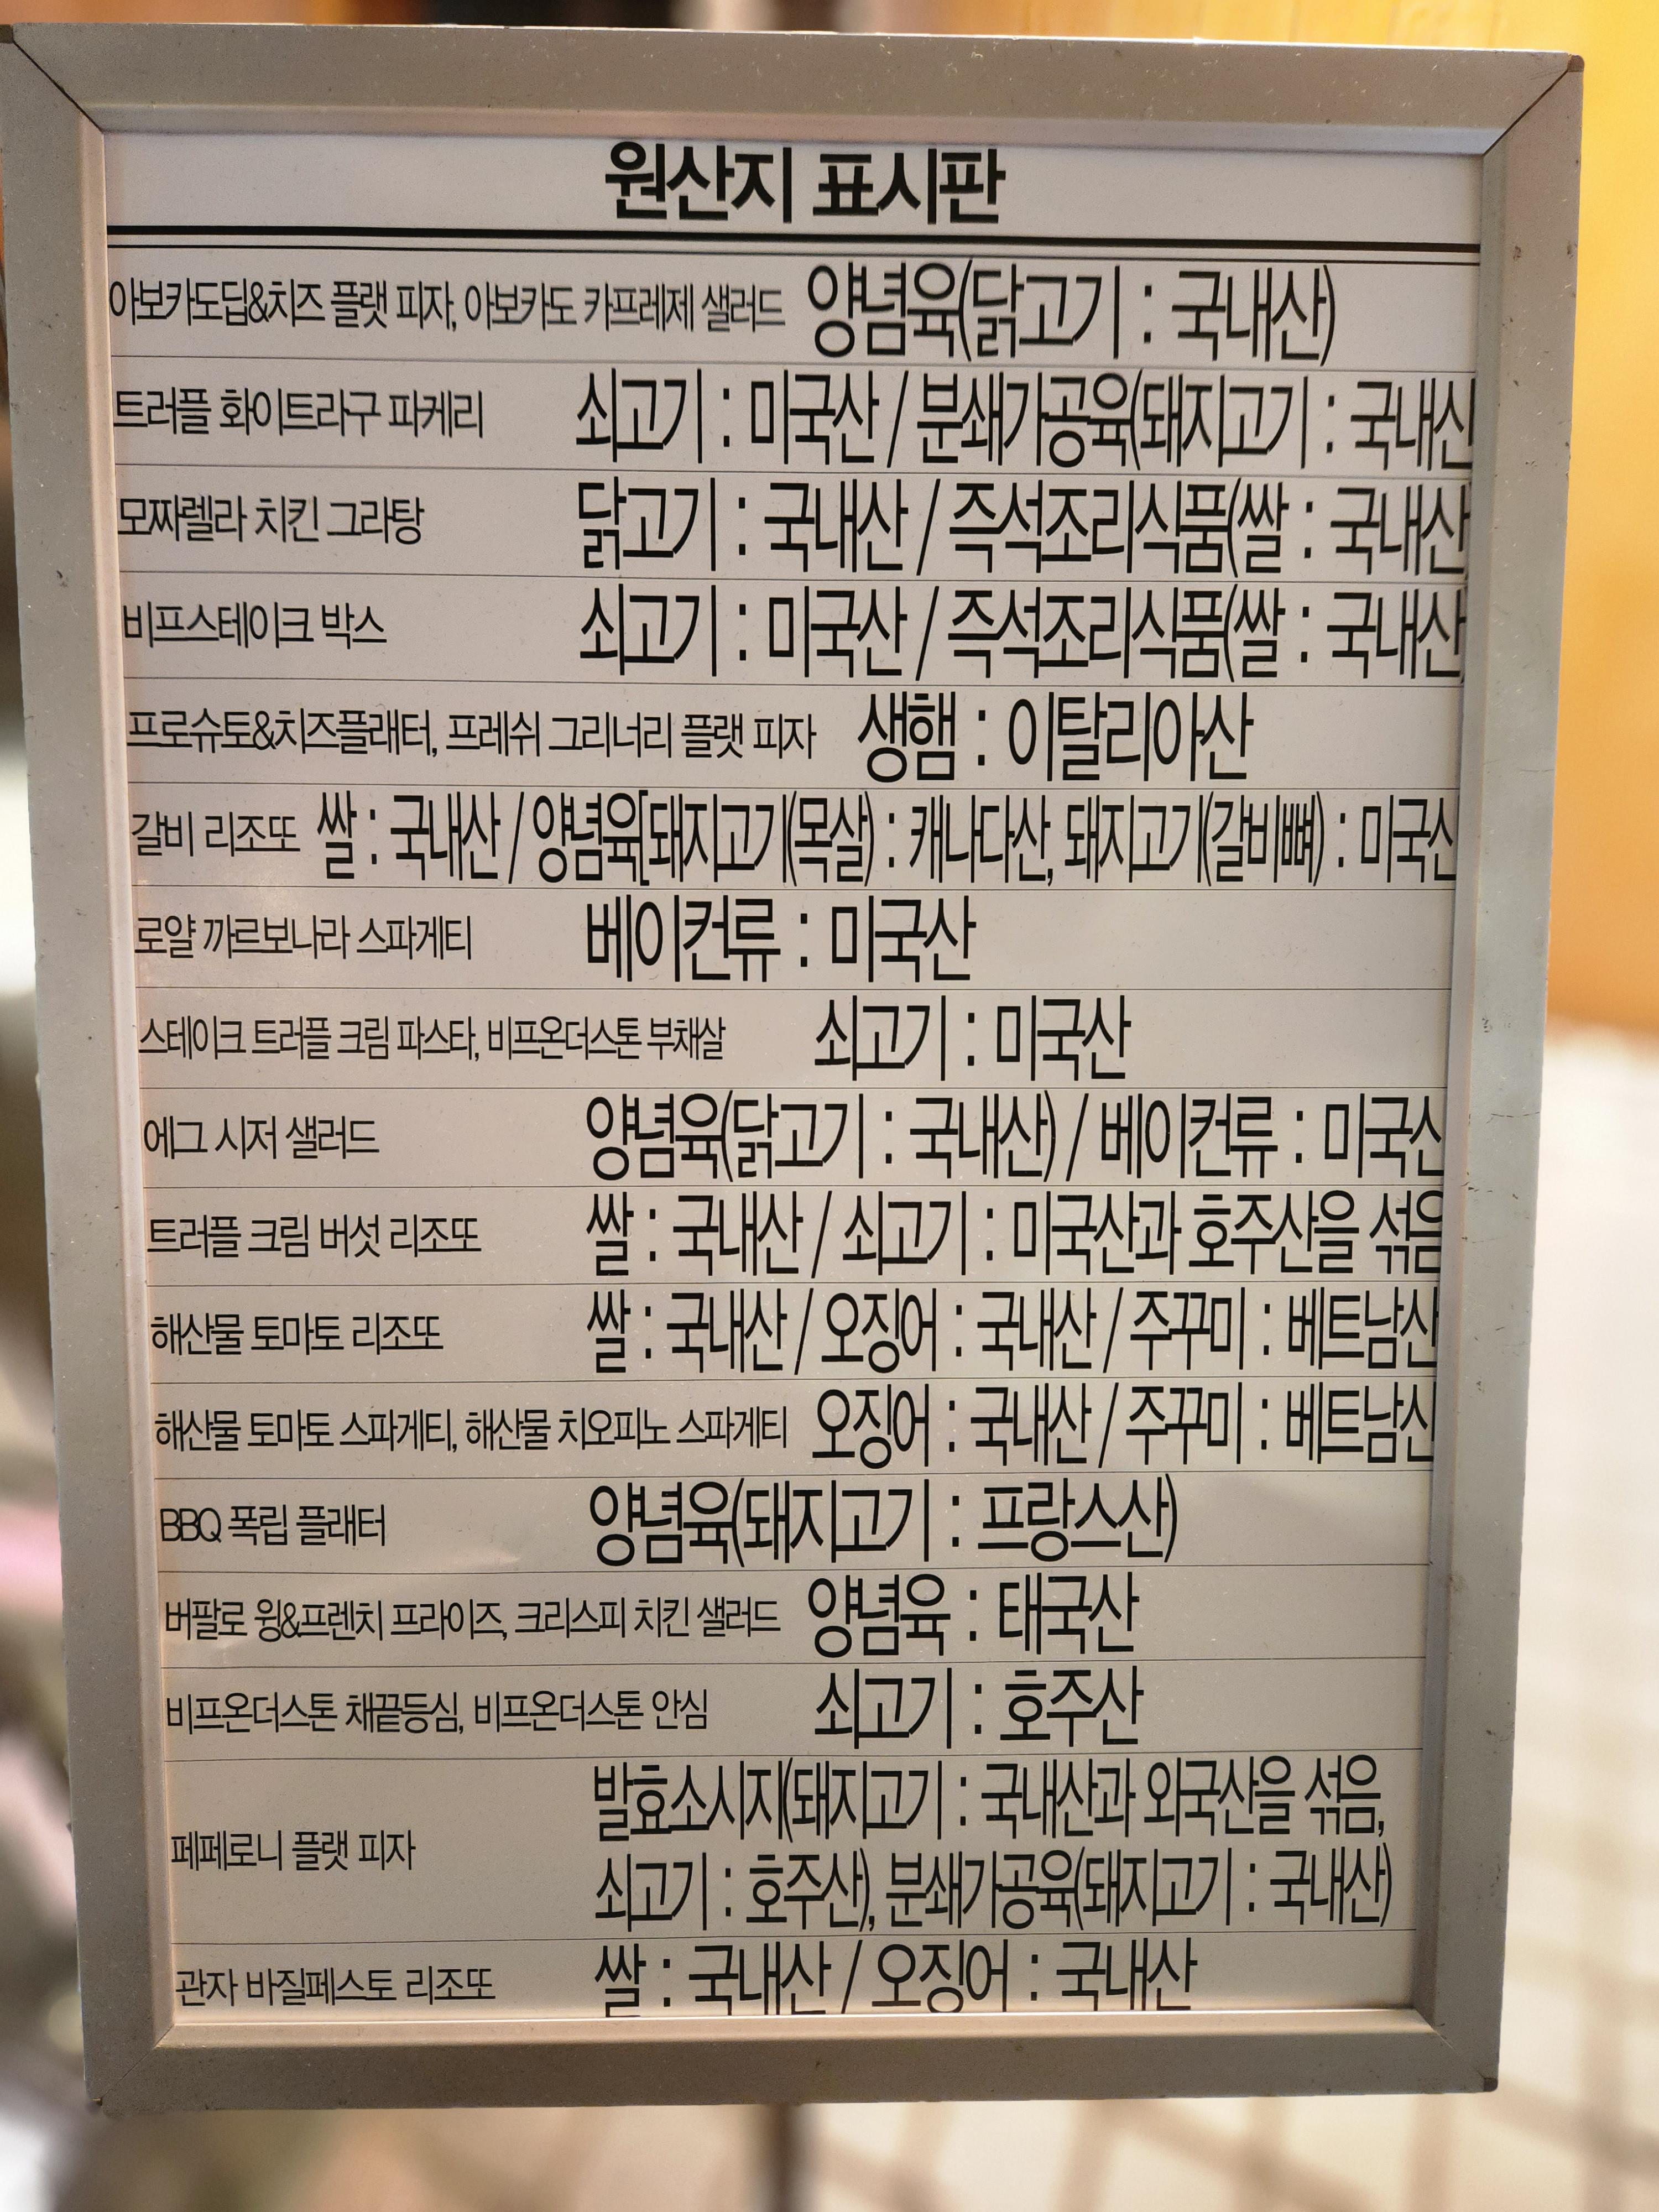 원산지 표시판
아보카도딥&치즈 플랫 피자, 아보카도 카프레제 샐러드 양념육(닭고기 : 국내산)
트러플 화이트라구 파케리 쇠고기 : 미국산 / 분쇄가공육(돼지고기 : 국내산
모짜렐라 치킨 그라탕 닭고기 : 국내산 / 즉석조리식품(쌀 : 국내산)
비프스테이크 박스 쇠고기 : 미국산 / 즉석조리식품(쌀 : 국내산)
프로슈토&치즈플래터, 프레쉬 그리너리 플랫 피자 생햄 : 이탈리아산
갈비 리조또 쌀 : 국내산 / 양념육[돼지고기(목살) : 캐나다산, 돼지고기(갈비뼈) : 미국산
로얄 까르보나라 스파게티 베이컨류 : 미국산
스테이크 트러플 크림 파스타, 비프온더스톤 부채살 쇠고기 : 미국산
에그 시저 샐러드 양념육(닭고기 : 국내산) / 베이컨류 : 미국산
트러플 크림 버섯 리조또 쌀 : 국내산 / 쇠고기 : 미국산과 호주산을 섞음
해산물 토마토 리조또 쌀 : 국내산 / 오징어 : 국내산 / 주꾸미 : 베트남산
해산물 토마토 스파게티, 해산물 치오피노 스파게티 오징어 : 국내산 / 주꾸미 : 베트남산
BBQ 폭립 플래터 양념육(돼지고기 : 프랑스산)
버팔로 윙&프렌치 프라이즈, 크리스피 치킨 샐러드 양념육 : 태국산
비프온더스톤 채끝등심, 비프온더스톤 안심 쇠고기 : 호주산
페페로니 플랫 피자 발효소시지(돼지고기 : 국내산과 외국산을 섞음,
쇠고기 : 호주산), 분쇄가공육(돼지고기 : 국내산)
관자 바질페스토 리조또 쌀 : 국내산 / 오징어 : 국내산